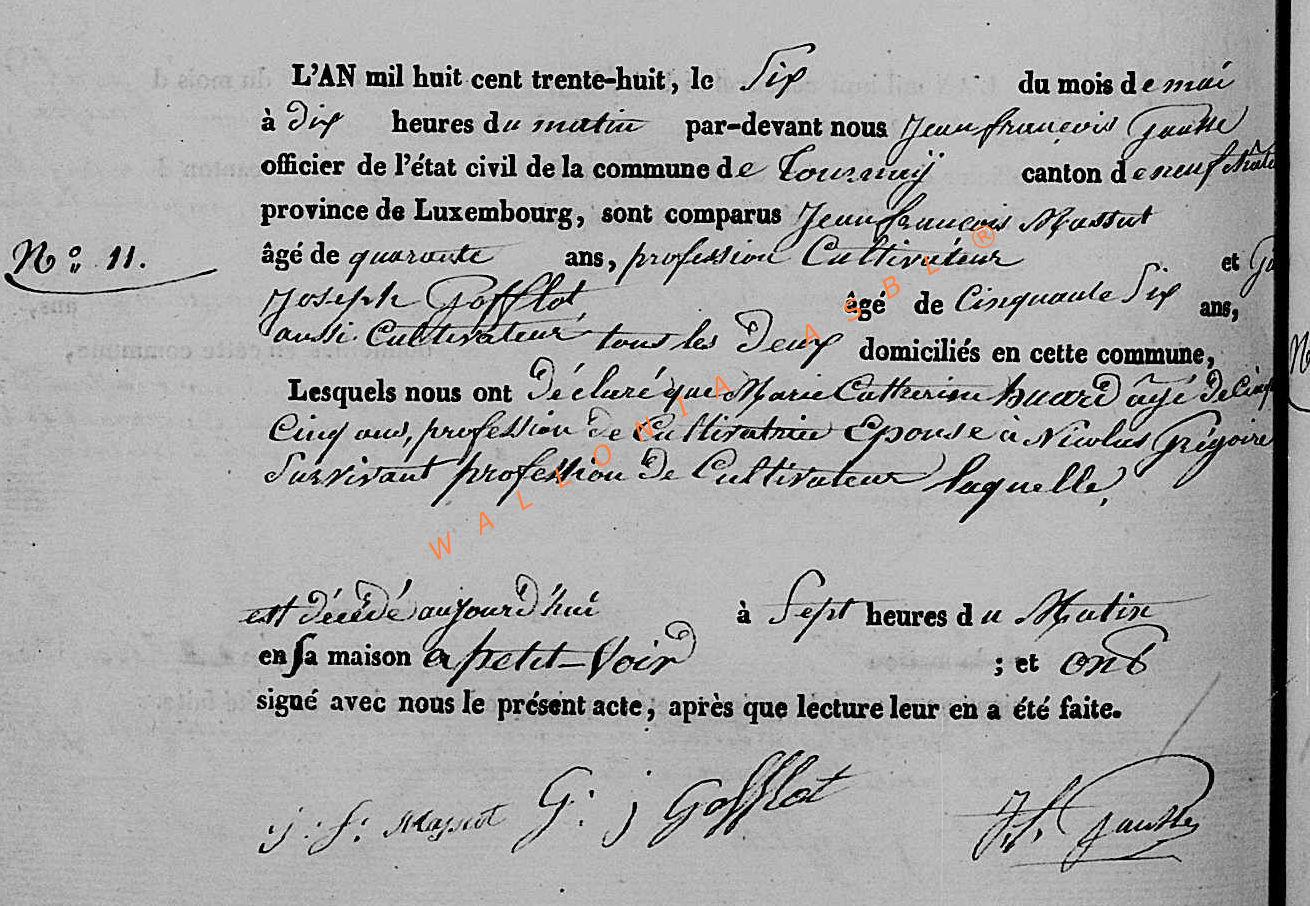 L'AN mil huit cent trente-huit, le Six du mois de mai
à Dix heures du matin par-devant nous Jean françois Gausse
officier de l'état civil de la commune de Tournaÿ canton de neufchâte
province de Luxembourg, sont comparus Jean françois Massut
N° 11. âgé de quarante ans, profession Cultivateur et
Joseph Gofflot âgé de Cinquante Six ans,
aussi Cultivateur tous les Deux domiciliés en cette commune,
Lesquels nous ont Déclaré que Marie Catherine huard âgé De
Cinq ans, profession de Cultivatrice Epouse à Nicolas Grégoire
Survivant profession De Cultivateur laquelle,
est décédé aujourd'hui à Sept heures du Matin
en sa maison a petit-Voir ; et ont
signé avec nous le présent acte, après que lecture leur en a été faite.
j. f. Massut G. j Gofflot J. f. Gausse
WALLONIA ASBL ®